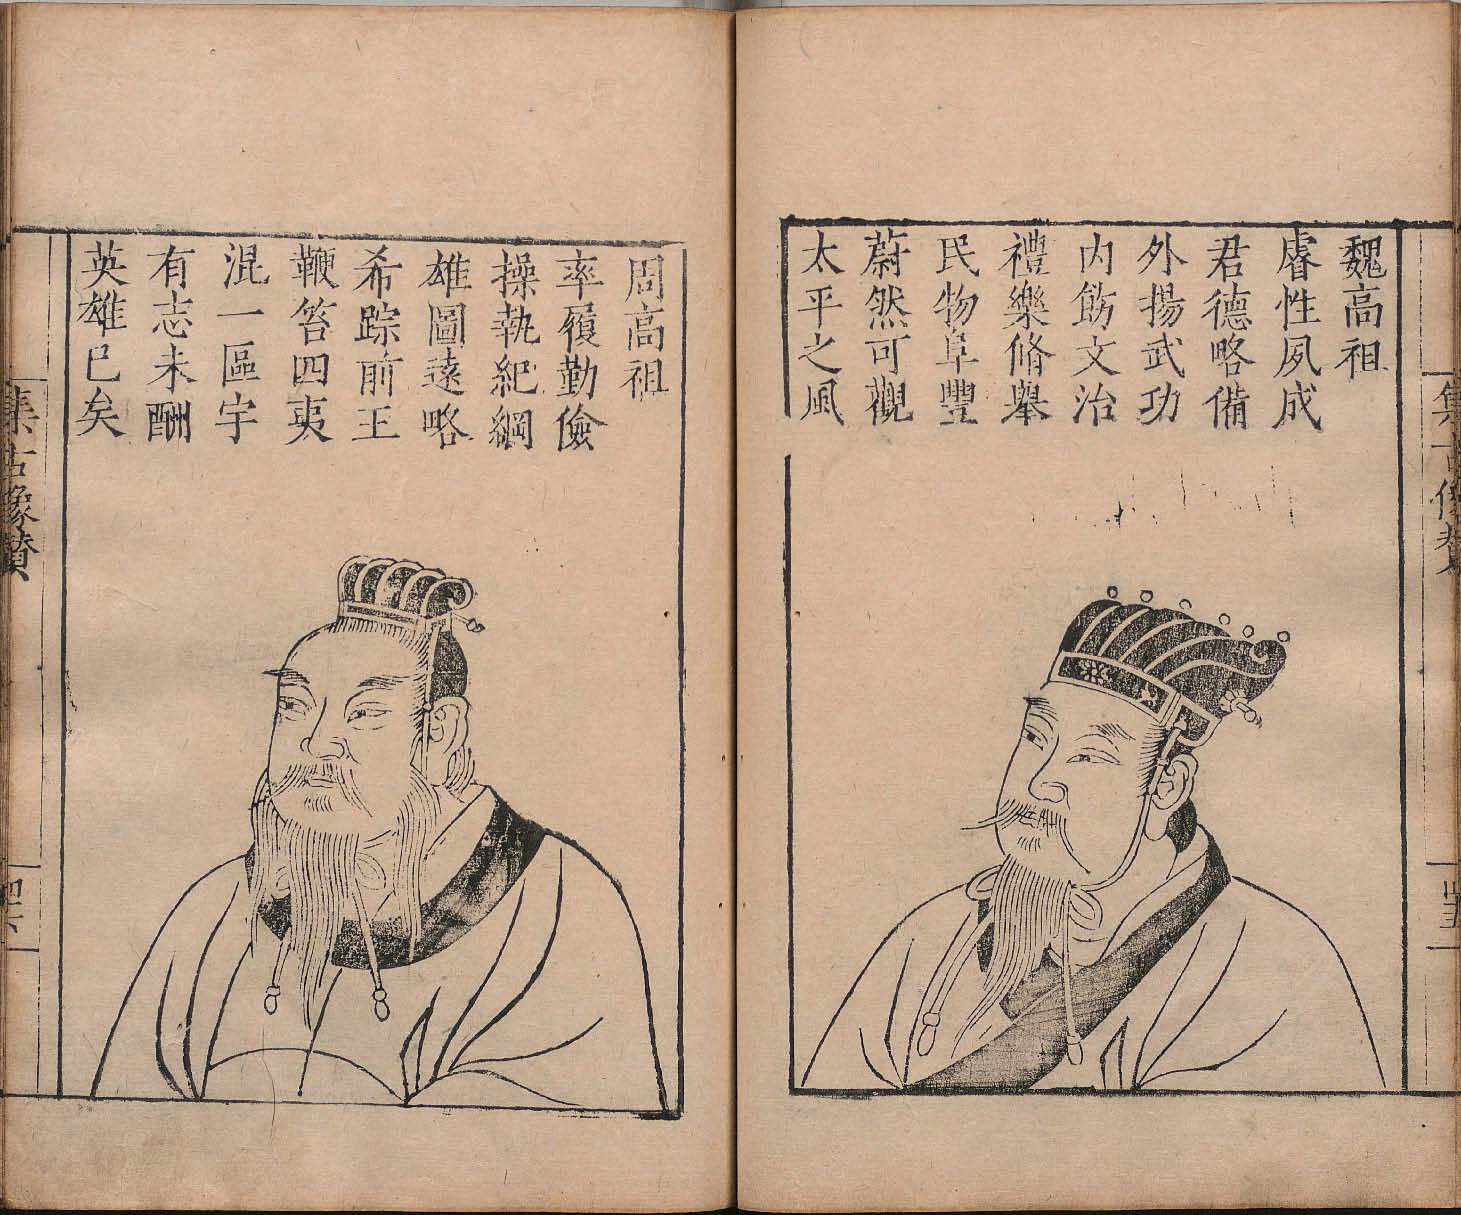 魏高祖
睿性夙成
君德略備
外揚武功
内飭文治
禮樂脩舉
民物阜豐
蔚然可觀
太平之風
周高祖
率履勤儉
操執紀綱
雄圖遠略
希踪前王
鞭笞四夷
混一區宇
有志未酬
英雄已矣
集古像贊
四十五
集古像贊
四十六